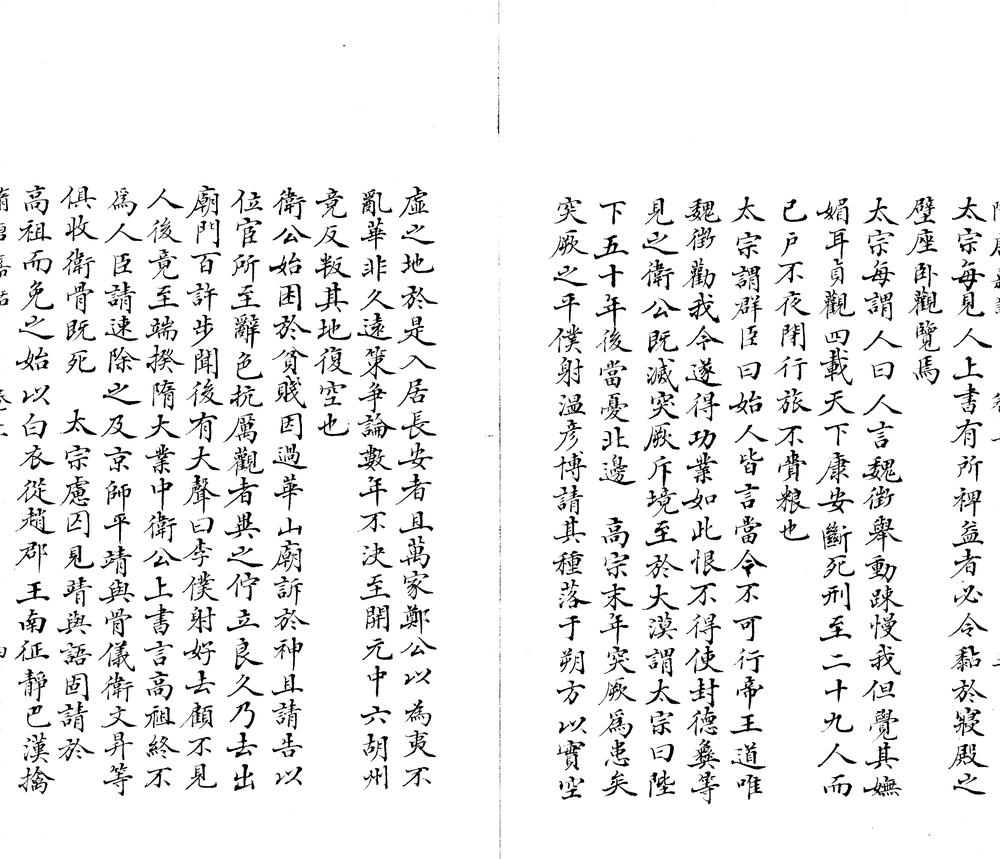 太宗每見人上書有所裨益者必令黏於寢殿之
壁座卧觀覽焉
太宗每謂人曰人言魏徵舉動踈慢我但覺其嫵
媚耳貞觀四載天下康安斷死刑至二十九人而
已戸不夜閉行旅不賫粮也
太宗謂群臣曰始人皆言當今不可行帝王道唯
魏徵勸我今遂得功業如此恨不得使封德彝等
見之衛公既滅突厥斥境至於大漠謂太宗曰陛
下五十年後當憂北邊 高宗末年突厥爲患矣
突厥之平僕射溫彦博請其種落于朔方以實空
虛之地於是入居長安者且萬家鄭公以為夷不
亂華非久遠策爭論數年不決至開元中六胡州
竟反叛其地復空也
衛公始困於貧賤因過華山廟訴於神且請告以
位宦所至辭色抗厲觀者異之佇立良久乃去出
廟門百許步聞後有大聲曰李僕射好去顧不見
人後竟至端揆隋大業中衛公上書言高祖終不
爲人臣請速除之及京師平靖與骨儀衛文昇等
俱收衛骨既死 太宗慮囚見靖與語固請於
高祖而免之始以白衣從趙郡王南征靜巴漢擒